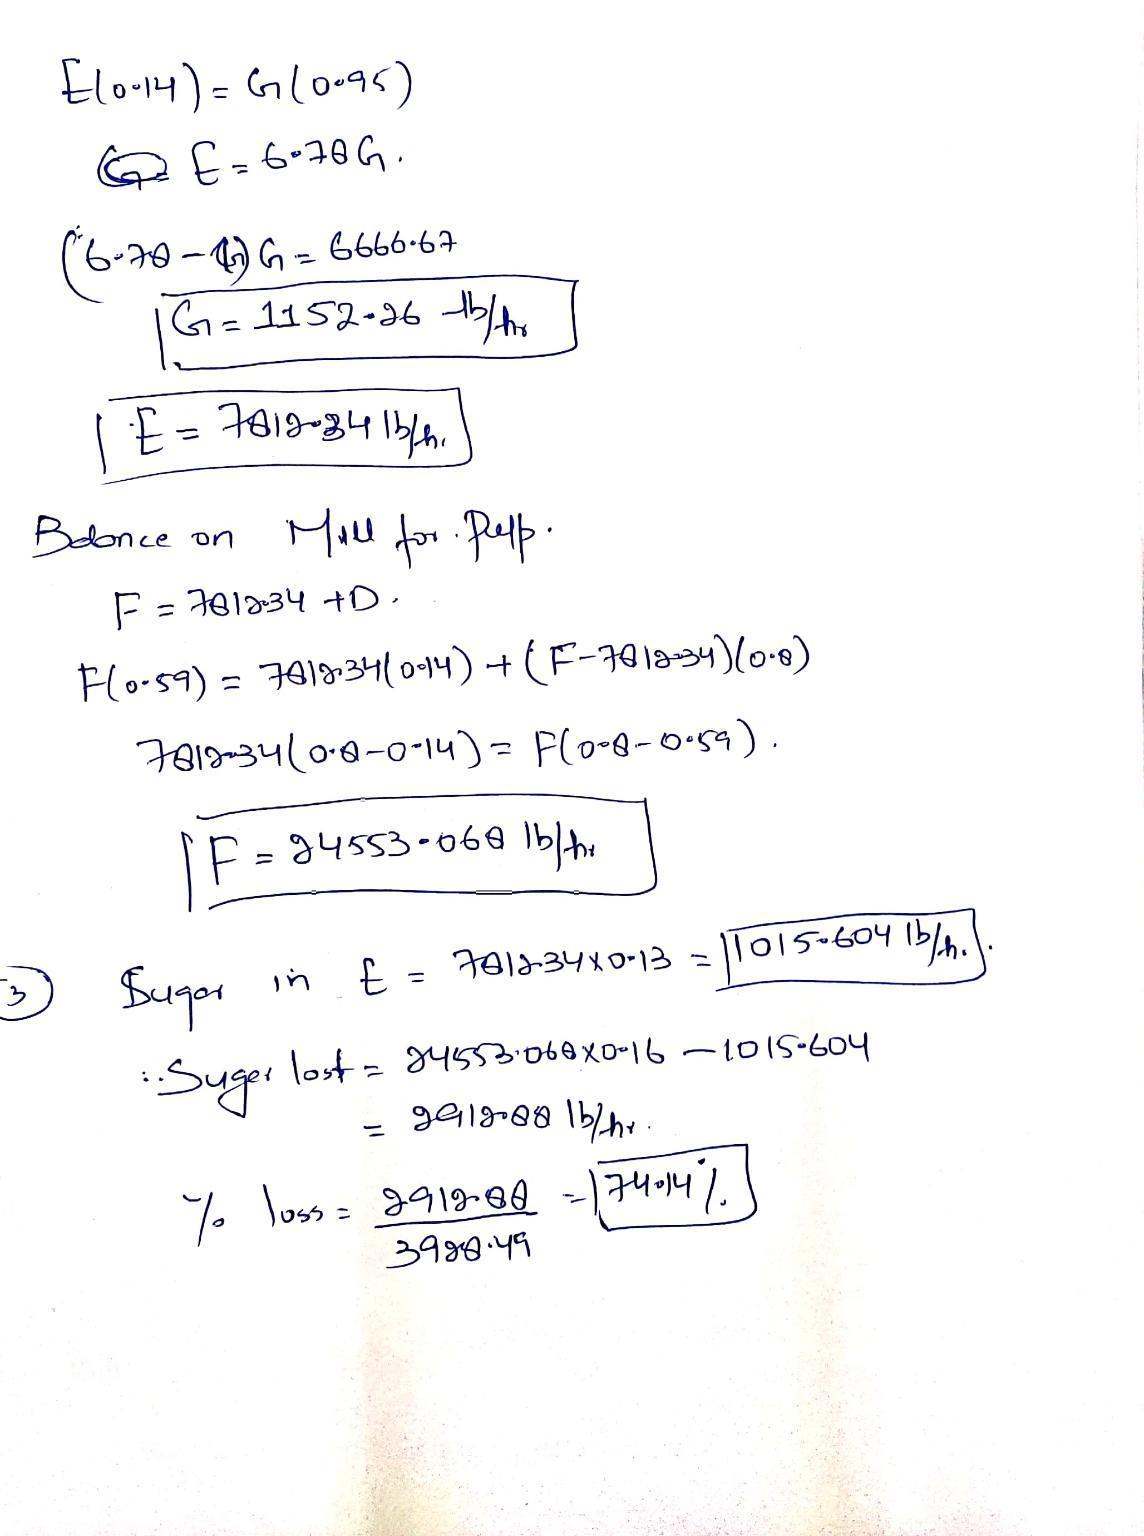 E(0.14) = G(0.95)
E = 6.78G.
(6.78 - 1) G = 6666.67
G = 1152.26 lb/hr
E = 7812.34 lb/h.
Balance on Mill for Pulp.
F = 7812.34 + D.
F(0.59) = 7812.34(0.14) + (F-7812.34)(0.8)
7812.34(0.8-0.14) = F(0.8-0.59).
F = 24553.068 lb/hr
3 Sugar in E = 7812.34x0.13 = 1015.604 lb/h.
∴ Suger lost = 24553.068x0.16 - 1015.604
= 2912.88 lb/hr.
% loss = 2912.88 / 3928.49 = 74.14%